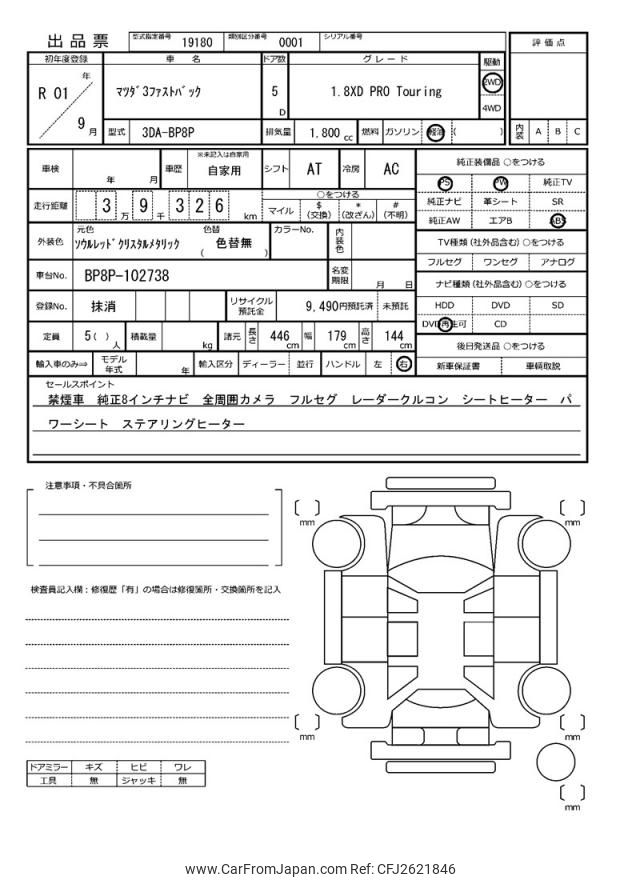 出品票
型式指定番号 19180 類別区分番号 0001 シリアル番号
評価点
初年度登録 車名 ドア数 グレード 駆動
R 01 年 9 月
マツダ3ファストバック
5 D
1.8XD PRO Touring
2WD
4WD
型式 3DA-BP8P 排気量 1,800 cc 燃料 ガソリン 軽油 ( )
内装 A B C
車検 年 月 車歴 ※未記入は自家用 自家用 シフト AT 冷房 AC
純正装備品 ○をつける
PS PW 純正TV
純正ナビ 革シート SR
純正AW エアB ABS
走行距離 3 万 9 千 3 2 6 km
○をつける
マイル $ (交換) * (改ざん) # (不明)
外装色 元色 ソウルレッドクリスタルメタリック 色替 ( 色替無 ) カラーNo. 内装色
TV種類(社外品含む)○をつける
フルセグ ワンセグ アナログ
車台No. BP8P-102738 名変期限 月 日
ナビ種類(社外品含む)○をつける
HDD DVD SD
DVD再生可 CD
登録No. 抹消 リサイクル預託金 9,490円預託済 未預託
定員 5( )人 積載量 kg 諸元 長さ 446 cm 幅 179 cm 高さ 144 cm
後日発送品 ○をつける
新車保証書 車輌取説
輸入車のみ⇒ モデル年式 年 輸入区分 ディーラー 並行 ハンドル 左 右
セールスポイント
禁煙車 純正8インチナビ 全周囲カメラ フルセグ レーダークルコン シートヒーター パ
ワーシート ステアリングヒーター
注意事項・不具合箇所
検査員記入欄:修復歴「有」の場合は修復箇所・交換箇所を記入
mm
mm
mm
mm
mm
ドアミラー キズ ヒビ ワレ
工具 無 ジャッキ 無
www.CarFromJapan.com Ref: CFJ2621846